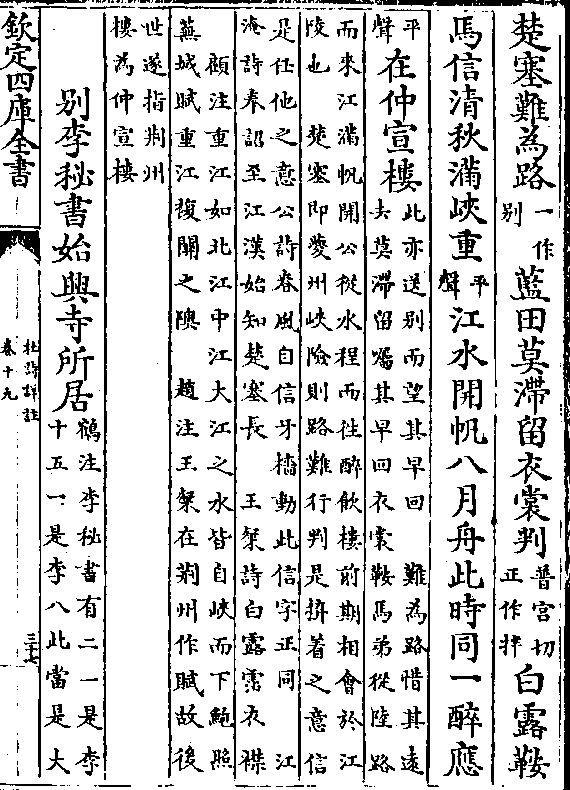 楚塞難為路一作别藍田莫滯留衣裳判普宫切正作拌白露鞍
馬信清秋滿峽重平聲江水開帆八月舟此時同一醉應
平聲在仲宣樓此亦送别而望其早回　難為路惜其遠去莫滯留囑其早回衣裳鞍馬弟從陸路
而來江滿帆開公從水程而往醉飲樓前期相會於江陵也　楚塞即夔州峽險則路難行判是拚着之意信
是任他之意公詩春風自信牙檣動此信字正同　江淹詩奉詔至江漢始知楚塞長　王粲詩白露霑衣襟
顧注重江如北江中江大江之水皆自峽而下鮑照蕪城賦重江複關之隩　趙注王粲在荆州作賦故後
世遂指荆州樓為仲宣樓
别李秘書始興寺所居鶴注李秘書有二一是李十五一是李八此當是大
欽定四庫全書
杜詩詳註
卷十九
三十七